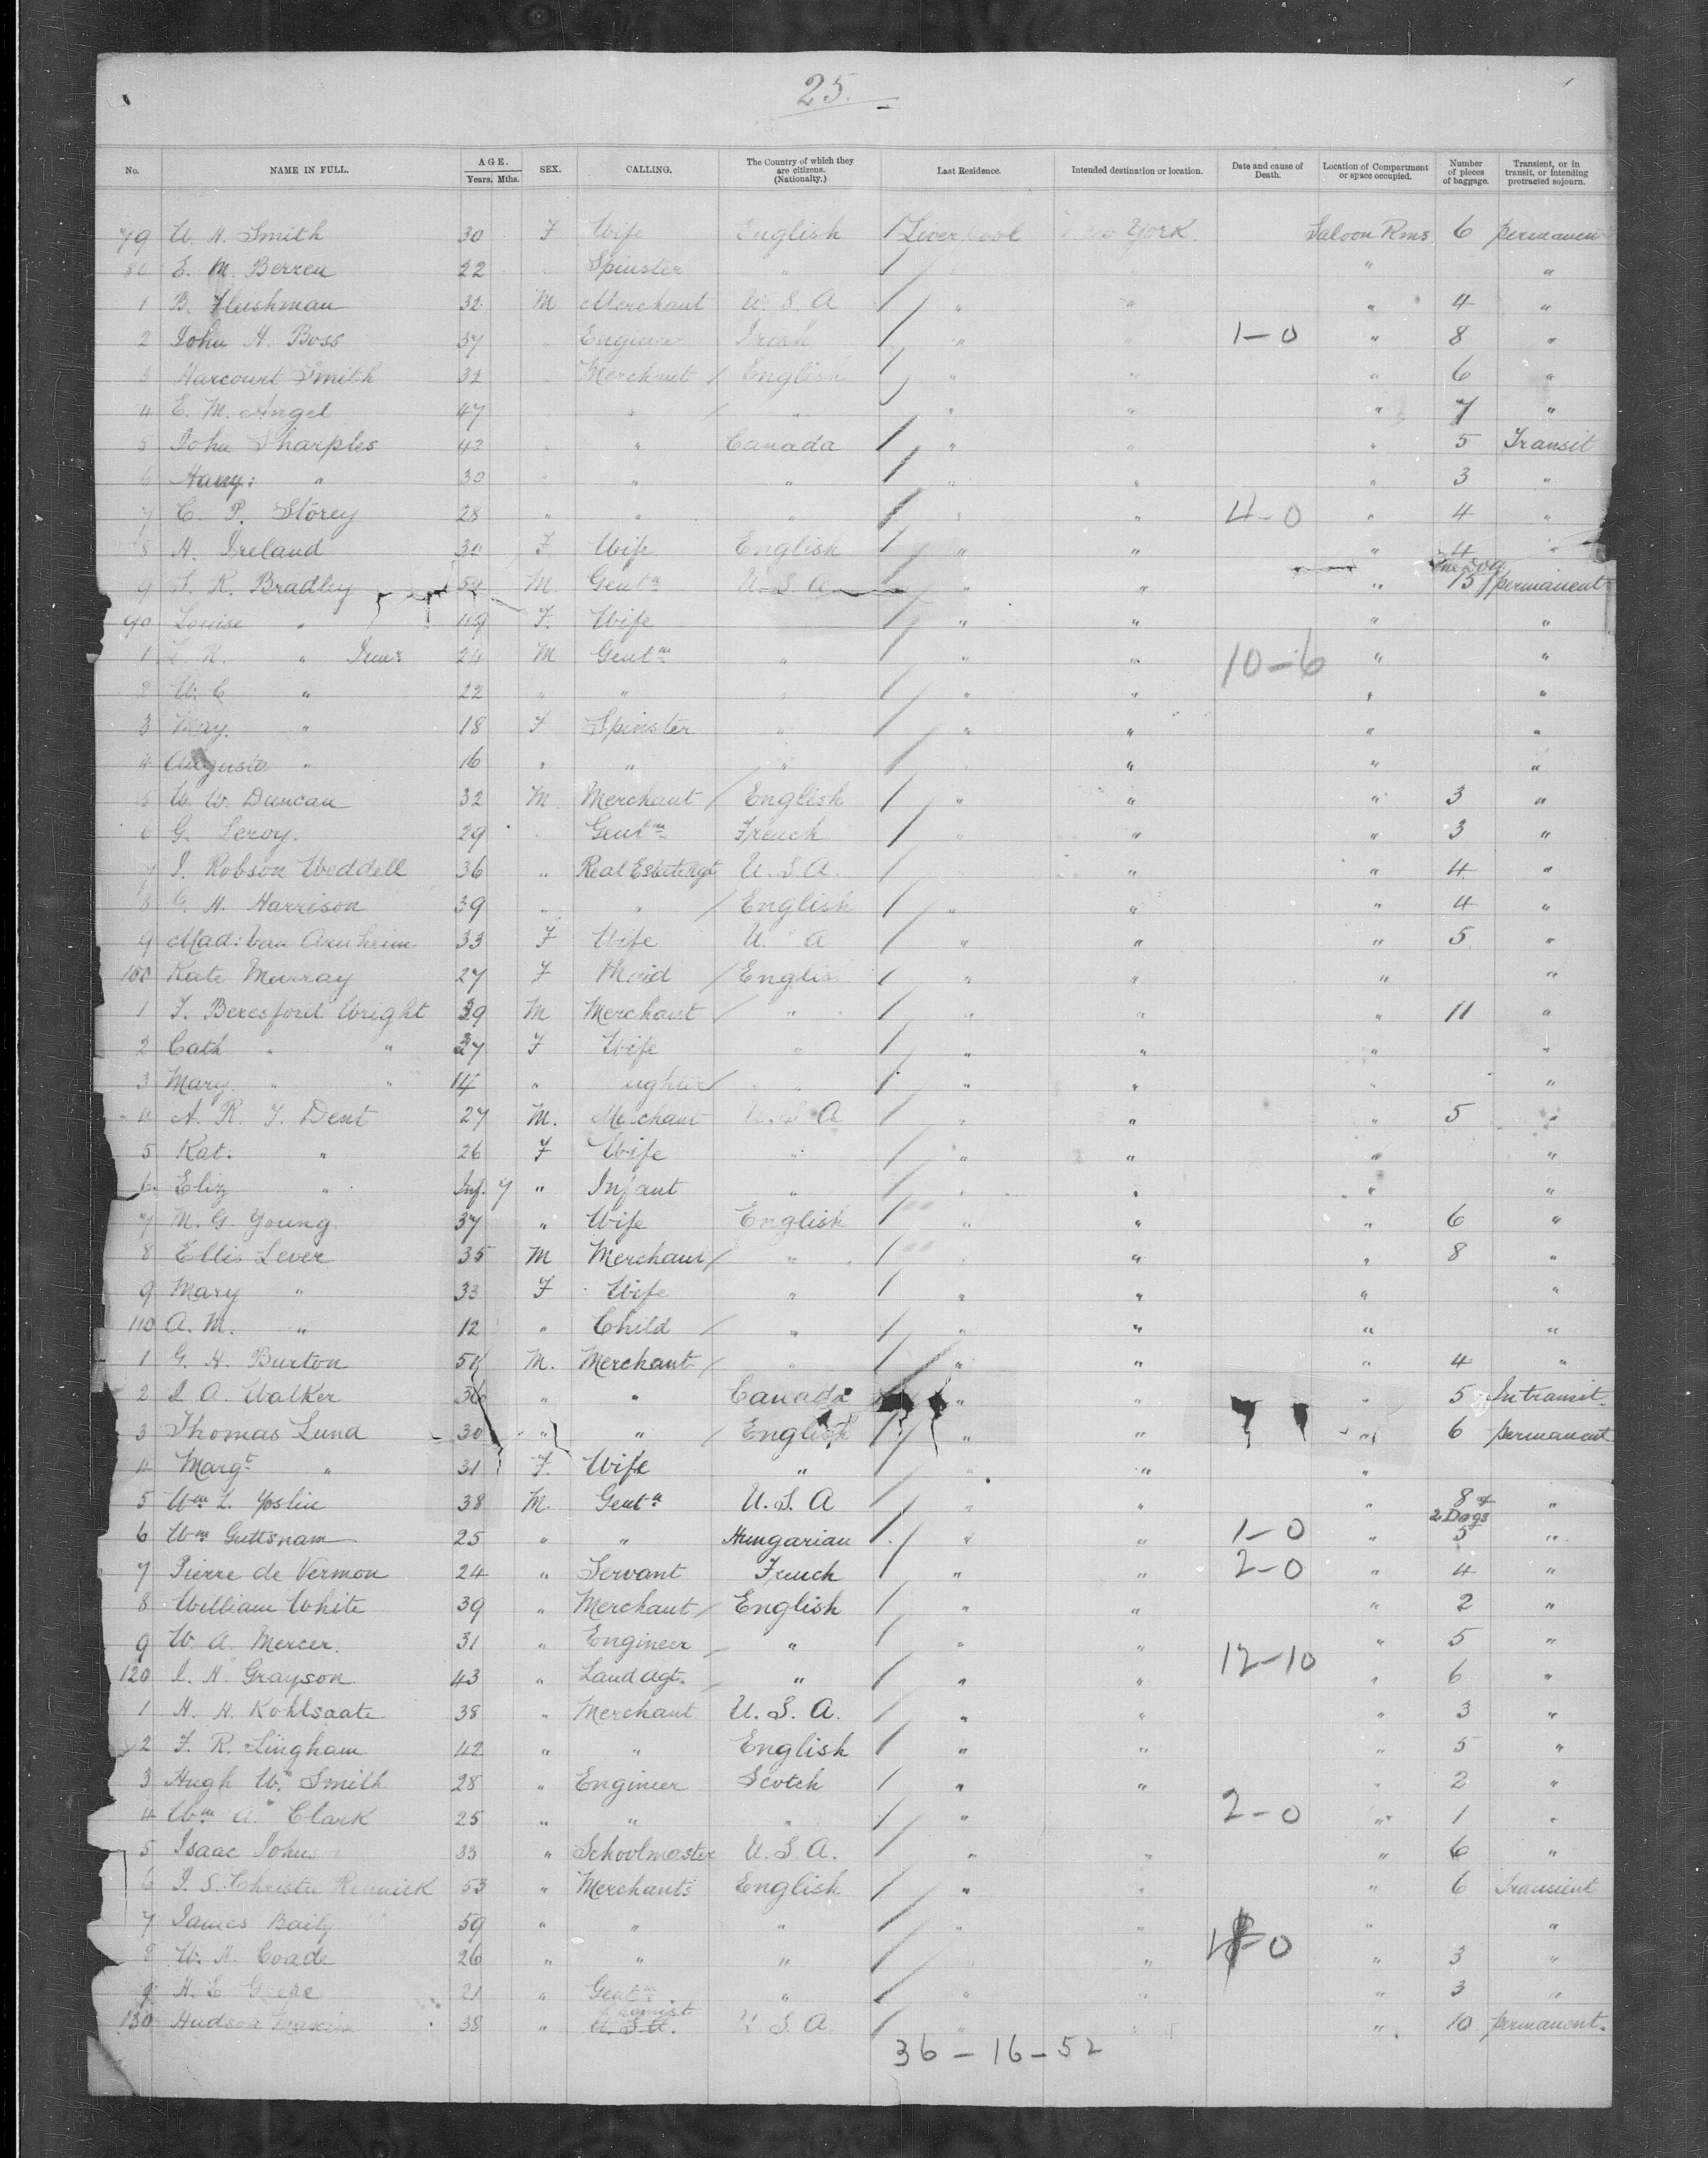 25.
No. NAME IN FULL. AGE. Years. Mths. SEX. CALLING. The Country of which they are citizens. (Nationality.) Last Residence. Intended destination or location. Date and cause of Death. Location of Compartment or space occupied. Number of pieces of baggage. Transient, or in transit, or intending protracted sojourn.
79 W. H. Smith 30 F Wife English / Liverpool New York Saloon Rms 6 permanen
80 E. M. Berren 22 " Spinster " / " " " "
1 B. Fleishman 32 M Merchant U. S. A / " " " 4 "
2 John H. Boss 37 " Engineer Irish / " " 1-0 " 8 "
3 Harcourt Smith 32 " Merchant / English / " " " 6 "
4 E. M. Angel 47 " / " " " " 7 "
5 John Sharples 42 " " Canada / " " " 5 Transit
6 Harry: " 30 " " " / " " " 3 "
7 C. P. Storey 28 " " " / " " 4-0 " 4 "
8 H. Ireland 30 F. Wife English / " " " 4 "
9 S. R. Bradley 54 M. Gentn U. S. A / " " " 15 permanent
90 Louise " 49 F. Wife / " " " "
1 S. R. " Junr 24 M Gentm " / " " 10-6 " "
2 W. C " 22 " " " / " " " "
3 May. " 18 F Spinster " / " " " "
4 Augusta " 16 " " " / " " "
5 W. W. Duncan 32 M. Merchant / English / " " " 3 "
6 G. Leroy. 29 " Gentm French / " " " 3 "
7 J. Robson Weddell 36 " Real Estate Agt U. S. A. / " " " 4 "
8 G. H. Harrison 39 " " / English / " " " 4 "
9 Mad: Van Arnheim 33 F Wife U. A / " " " 5 "
100 Kate Murray 27 F Maid / Englis / " " " "
1 F. Beresford Wright 39 M Merchant / " / " " " 11 "
2 Cath " " 37 F Wife " / " " " "
3 Mary. " " 14 " ughter / " / " " " "
4 A. R. F. Dent 27 M. Merchant U. S. A / " " " 5 "
5 Kat: " 26 F Wife " / " " " "
6 Eliz " Inf. 7 " Infant " / " " " "
7 M. G. Young. 37 " Wife English / " " " 6 "
8 Ellis Lever 35 M Merchant / " / " " " 8 "
9 Mary " 33 F Wife " / " " " "
110 A. M. " 12 " Child / " / " " " "
1 G. H. Burton 51 M. Merchant / " / " " " 4 "
2 J. A. Walker 36 " " Canada " " " 5 In transit.
3 Thomas Lund 30 " " / English / " " " 6 permanent
4 Margt " 31 F. Wife " / " " "
5 Wm L. Yoslin 38 M. Gentn U. S. A / " " " 8 & 2 Dogs "
6 Wm Guttsnam 25 " " Hungarian / " " 1-0 " 5 "
7 Pierre de Vermon 24 " Servant French / " " 2-0 " 4 "
8 William White 39 " Merchant / English / " " " 2 "
9 W. A. Mercer. 31 " Engineer / " / " " " 5 "
120 J. H. Grayson 43 " Land Agt. / " / " " 12-10 " 6 "
1 H. H. Kohlsaate 38 " Merchant U. S. A. / " " " 3 "
2 F. R. Lingham 42 " " English / " " " 5 "
3 Hugh W. Smith 28 " Engineer Scotch / " " " 2 "
4 Wm A. Clark 25 " " " / " 2-0 " 1 "
5 Isaac John 33 " Schoolmaster U. S. A. / " " " 6 "
6 J. S. Christie 53 " Merchants English / " " " 6 Transient
7 James Baily 59 " " " / " " " "
8 W. H. Coade 26 " " " / " " -0 " 3 "
9 H. L 21 " Gentm " / " " " 3 "
130 Hudson Maxim 38 " Chemist U. S. A / " " " 10 permanent.
36-16-52